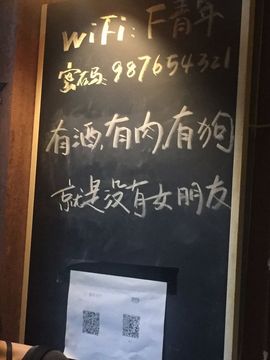 WiFi: F青年
密码: 987654321
有酒,有肉,有狗
就是没有女朋友